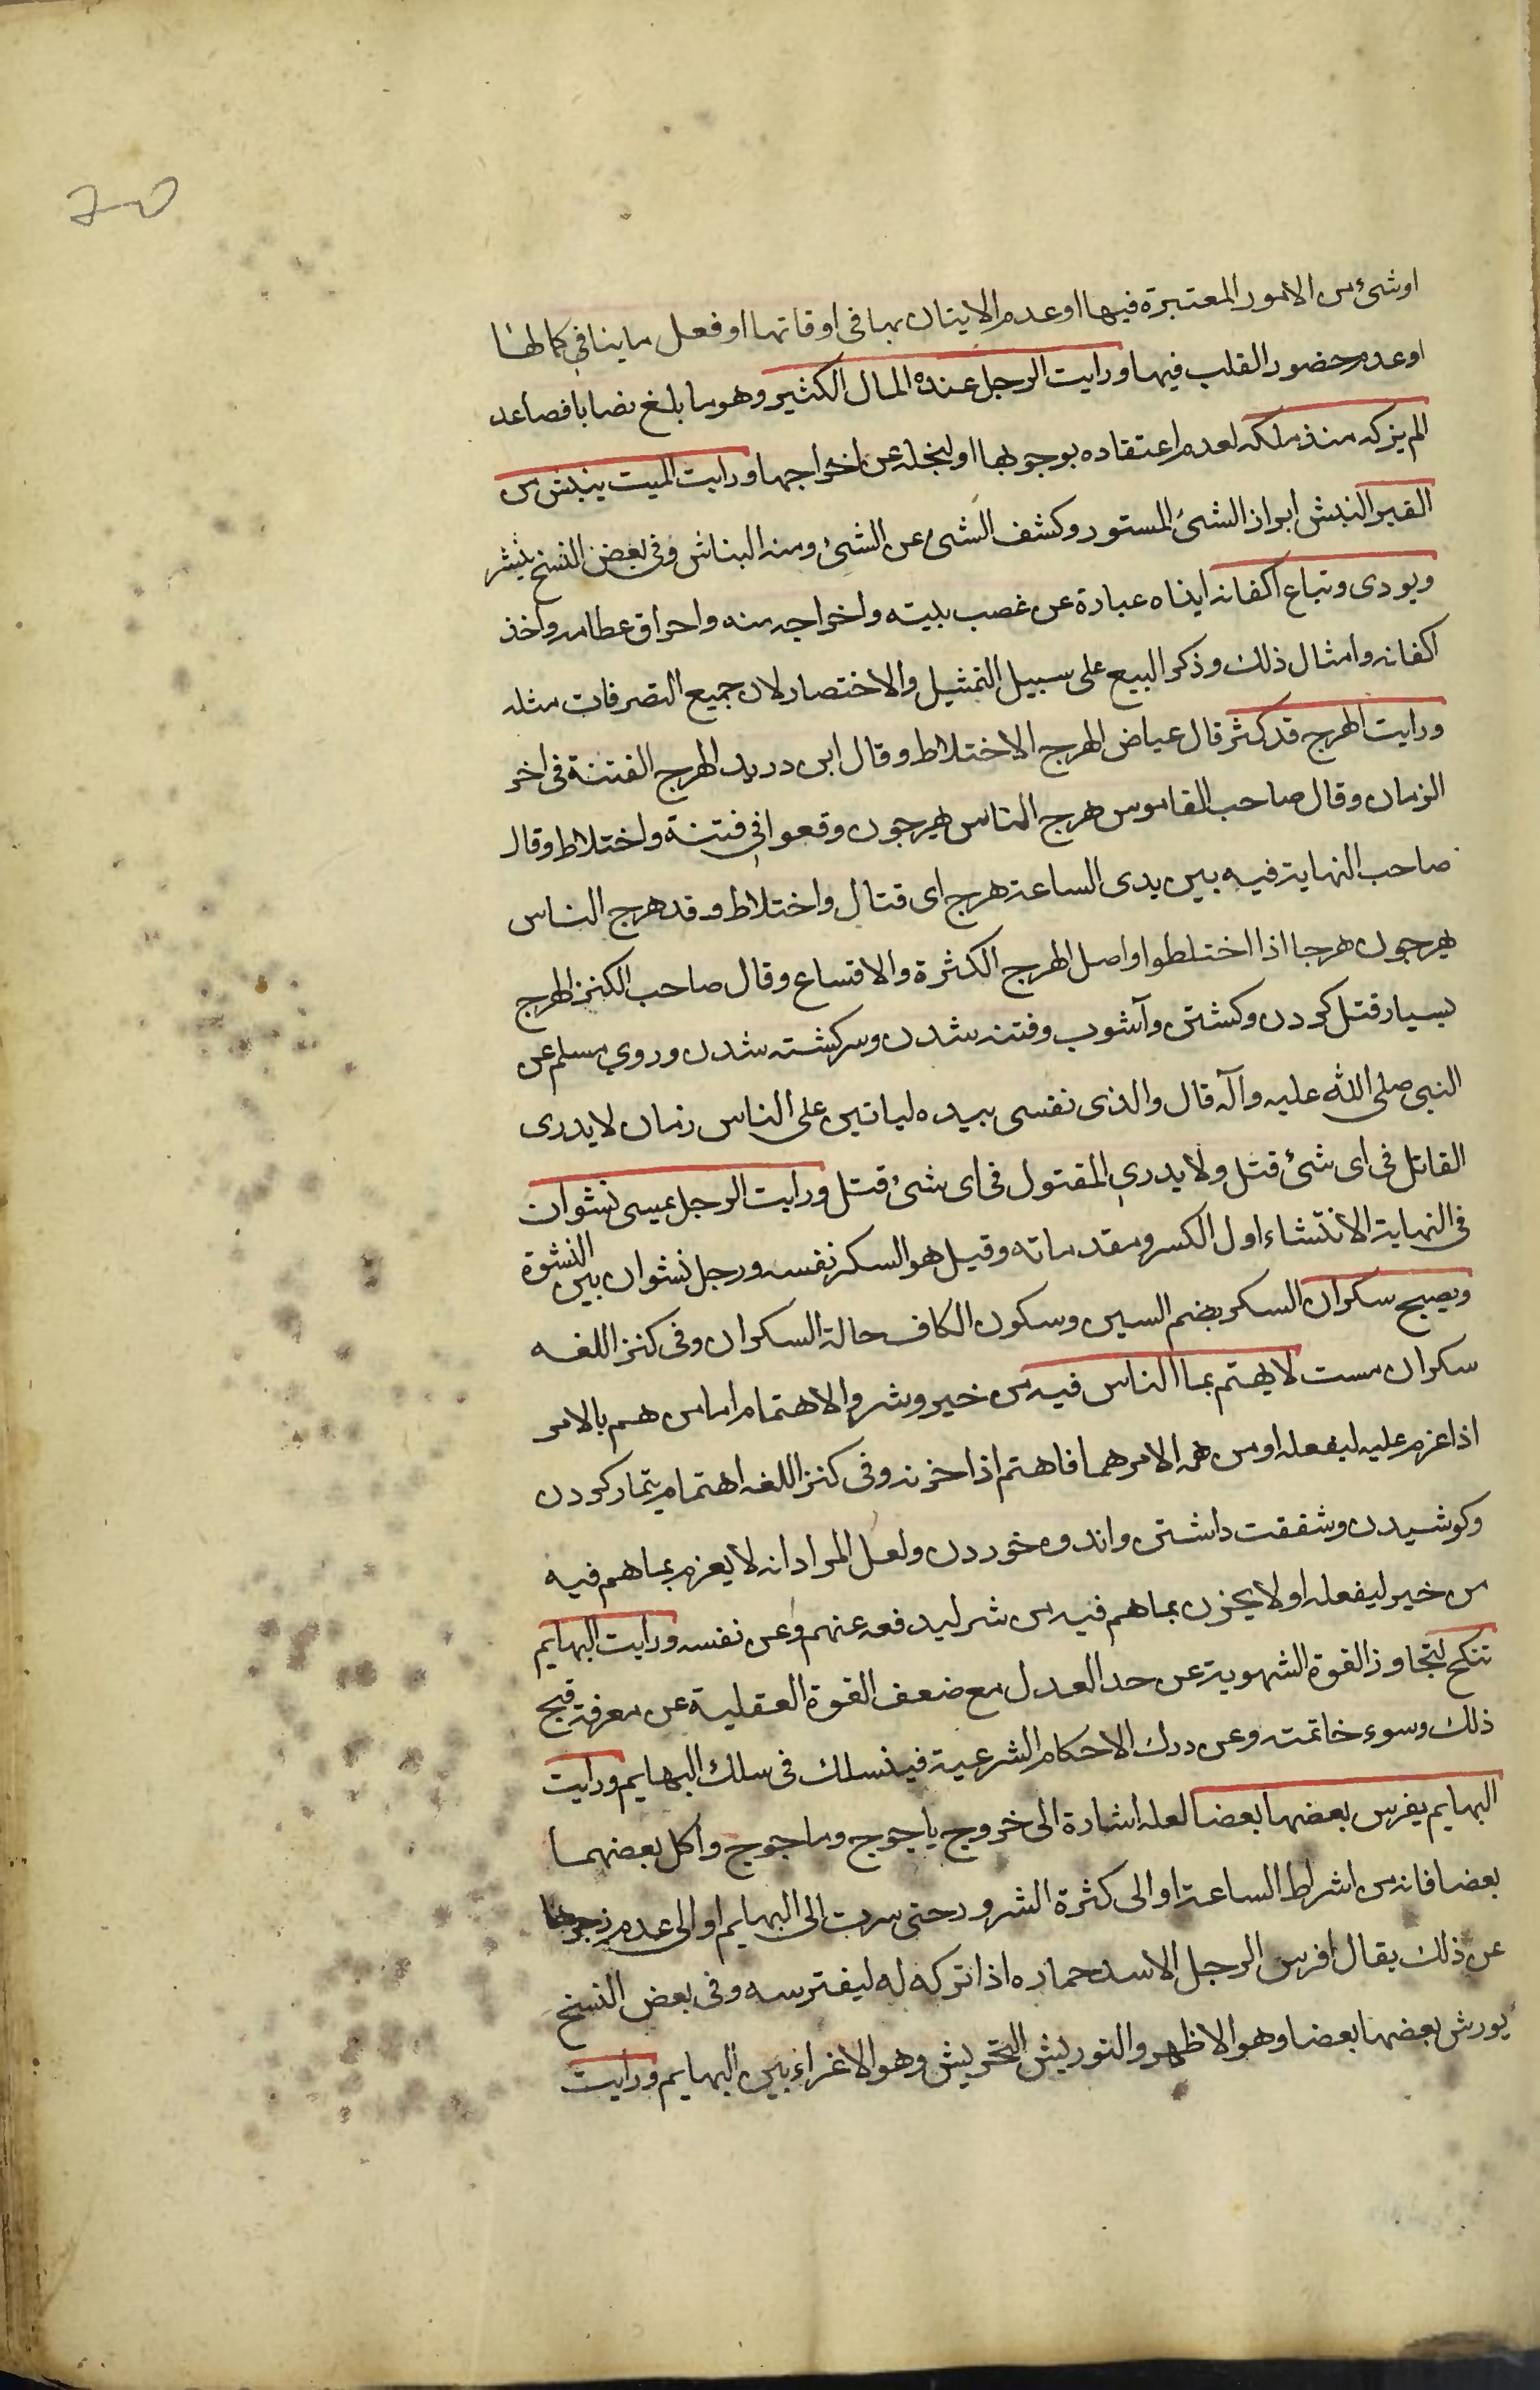 اوشئ من الامور المعتبرة فيها او عدم الايتان بها فى اوقاتها او فعل ما ينافي كمالها
او عدم حضور القلب فيها ورايت الرجل عنده المال الكثير وهو ما بلغ نصابا فصاعد
الم يزكه منذ ملكه لعدم اعتقاده بوجوبها او لبخله عن اخراجها ورايت الميت ينبش من
القبر النبش ابراز الشئ المستور وكشف الشئ عن الشئ ومنه البناش وفى بعض النسخ ينشر
ويودى وتباع اكفانه ايذاه عبارة عن غصب بيته واخراجه منه واحراق عظامه واخذ
اكفانه وامثال ذلك وذكر البيع على سبيل التمثيل والاختصار لان جميع التصرفات مثله
ورايت الهرج قد كثر قال عياض الهرج الاختلاط وقال ابن دريد الهرج الفتنة فى اخر
الزمان وقال صاحب القاموس هرج الناس يهرجون وقعوا فى فتنة واختلاط وقال
صاحب النهاية فيه بين يدى الساعة هرج اى قتال واختلاط وقد هرج الناس
يهرجون هرجا اذا اختلطوا واصل الهرج الكثرة والاتساع وقال صاحب الكنز الهرج
بسيار قتل كردن وكشتن وآشوب وفتنه شدن وسركشته شدن وروي مسلم عن
النبى صلى الله عليه وآله قال والذى نفسى بيده لياتين على الناس زمان لا يدرى
القاتل فى اى شئ قتل ولا يدري المقتول فى اى شئ قتل ورايت الرجل يمسى نشوان
فى النهاية الانتشاء اول الكسر ومقدماته وقيل هو السكر نفسه ورجل نشوان بين النشوة
ويصبح سكران السكر بضم السين وسكون الكاف حالة السكران وفى كنز اللغه
سكران مست لا يهتم بما الناس فيه من خير وشر والاهتمام اما من هم بالامر
اذا عزم عليه ليفعله او من همه الامر هما فاهتم اذا حزنه وفى كنز اللغه اهتمام تيمار كردن
وكوشيدن وشفقت داشتن واندوه خوردن ولعل المراد انه لا يعزم بما هم فيه
من خير ليفعله او لا يحزن بما هم فيه من شر ليدفعه عنهم وعن نفسه ورايت البهايم
تنكح لتجاوز القوة الشهوية عن حد العدل مع ضعف القوة العقلية عن معرفة قبح
ذلك وسوء خاتمته وعن درك الاحكام الشرعية فينسلك فى سلك البهايم ورايت
البهايم يفرس بعضها بعضا لعله اشارة الى خروج ياجوج وماجوج واكل بعضهما
بعضا فانه من اشراط الساعة او الى كثرة الشرور حتى سرت الى البهايم او الى عدم زجرها
عن ذلك يقال افرس الرجل الاسد حماره اذا تركه له ليفترسه وفى بعض النسخ
يورش بعضها بعضا وهو الاظهر والتوريش التحريش وهو الاغراء بين البهايم ورايت